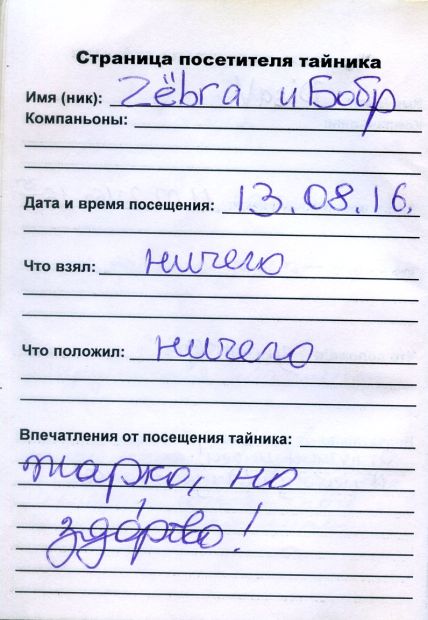 Страница посетителя тайника
Имя (ник): Zёbra и Бобр
Компаньоны:
Дата и время посещения: 13.08.16.
Что взял: ничего
Что положил: ничего
Впечатления от посещения тайника:
жарко, но
здо́рово!